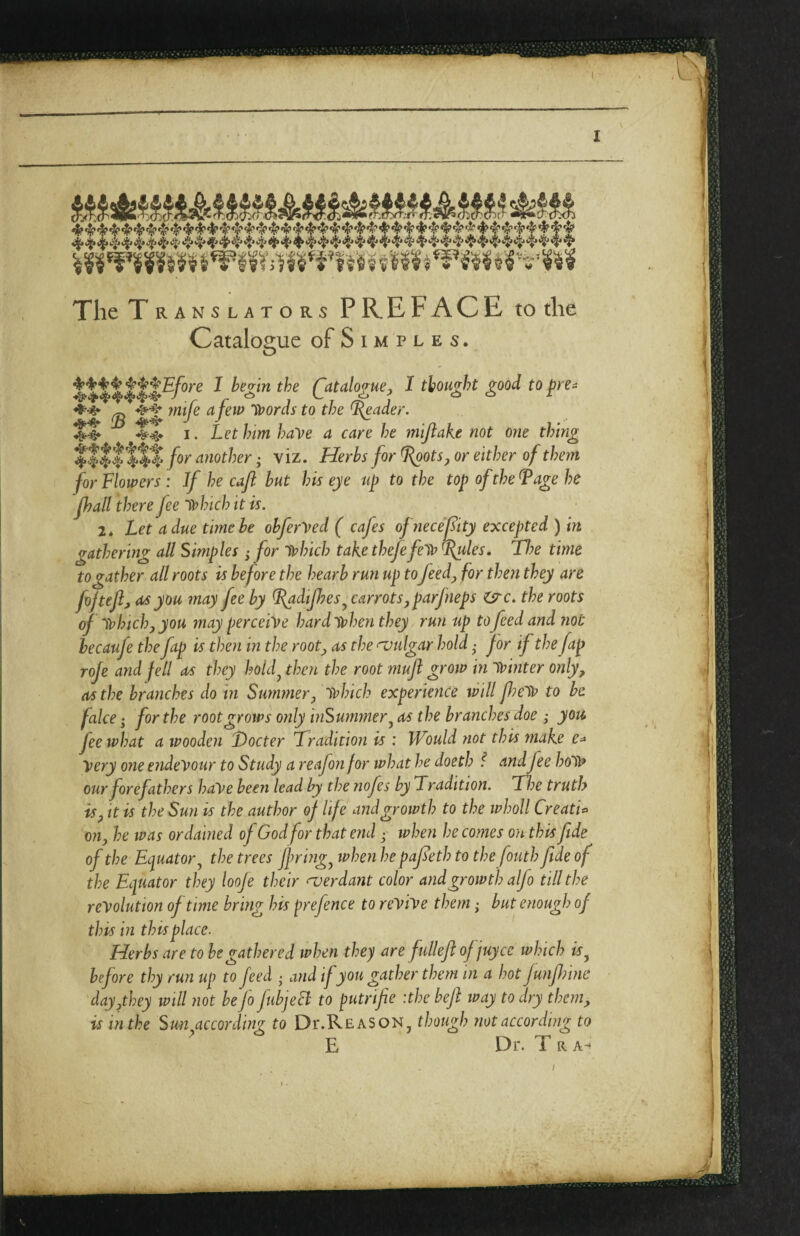 1
The TRANSLATORS PREFACE to the
Catalogue of SIMPLES.
BEfore I begin the Catalogue, I thought good to pre-
mise a few words to the Reader.
1. Let him have a care he miſtake not one thing
for another; viz. Herbs for Roots, or either of them
for Flowers: If he caſt but his eye up to the top of the Page he
ſhall there ſee which it is.
2. Let a due time be obſerved ( caſes of neceſſity excepted ) in
gathering all Simples; for which take theſe few Rules. The time
to gather all roots is before the hearb run up to ſeed, for then they are
ſofteſt, as you may ſee by Radiſhes, carrots, parſneps &c. the roots
of which, you may perceive hard when they run up to ſeed and not
becauſe the ſap is then in the root, as the vulgar hold; for if the ſap
roſe and fell as they hold, then the root muſt grow in winter only,
as the branches do in Summer, which experience will ſhew to be
falce; for the root grows only inSummer, as the branches doe; you
ſee what a wooden Docter Tradition is: Would not this make e-
very one endevour to Study a reaſon for what he doeth? and ſee how
our forefathers have been lead by the noſes by Tradition. The truth
is, it is the Sun is the author of life and growth to the wholl Creati-
on, he was ordained of God for that end; when he comes on this ſide
of the Equator, the trees ſpring, when he paſſeth to the ſouth ſide of
the Equator they looſe their verdant color and growth alſo till the
revolution of time bring his preſence to revive them; but enough of
this in this place.
Herbs are to be gathered when they are fulleſt of juyce which is,
before thy run up to ſeed; and if you gather them in a hot ſunſhine
day,they will not be ſo ſubject to putrifie :the beſt way to dry them,
is in the Sun,according to Dr.REASON, though not according to
E Dr. TRA-